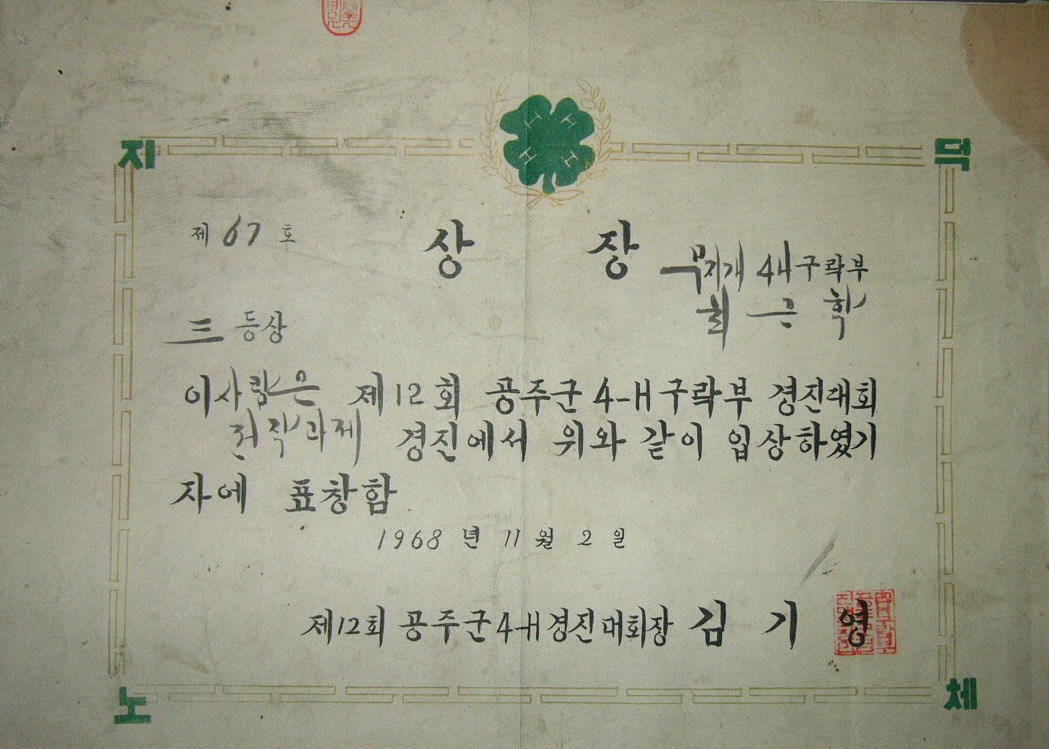 지 덕
H H H H
제 67 호
상 장
무지개 4H구락부
최 근 학
三 등상
이사람은 제12회 공주군4-H구락부 경진대회
전작과제 경진에서 위와 같이 입상하였기
자에 표창함
1968 년 11 월 2 일
제12회 공주군4-H경진대회장 김 기 영
노 체